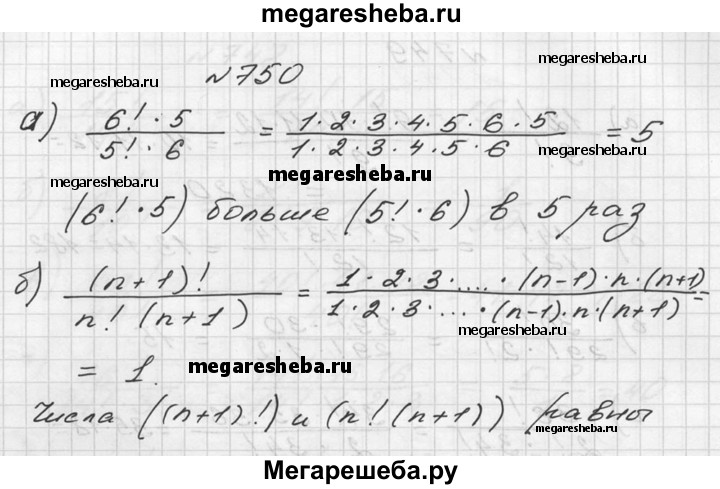 megaresheba.ru
№750
megaresheba.ru megaresheba.ru
а) 6!·5 / 5!·6 = 1·2·3·4·5·6·5 / 1·2·3·4·5·6 = 5
megaresheba.ru megaresheba.ru megaresheba.ru
(6!·5) больше (5!·6) в 5 раз
б) (n+1)! / n!(n+1) = 1·2·3·....·(n-1)·n·(n+1) / 1·2·3·...·(n-1)·n·(n+1) =
megaresheba.ru
= 1. megaresheba.ru
Числа ((n+1)!) и (n!(n+1)) равны
megaresheba.ru megaresheba.ru
Мегарешеба.ру